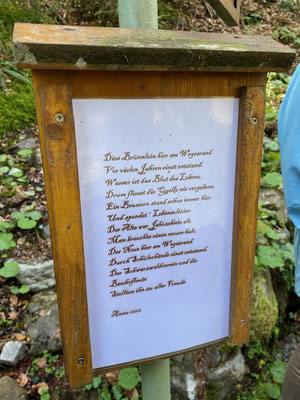 Dies Brünnlein hier am Wegesrand
Vor vielen Jahren einst entstand.
Wasser ist das Blut des Lebens,
Drum fliesst die Quelle nie vergebens.
Ein Brunnen stand schon immer hier
Und spendet Lebenselixier.
Der Alte war Jahrzehnte alt.
Man brauchte einen neuen halt.
Der Neue hier am Wegesrand
Durch Schülerhände einst entstand.
Der Schwarzwaldverein und die
Bauhofleute
Stellten ihn zu aller Freude
Anno